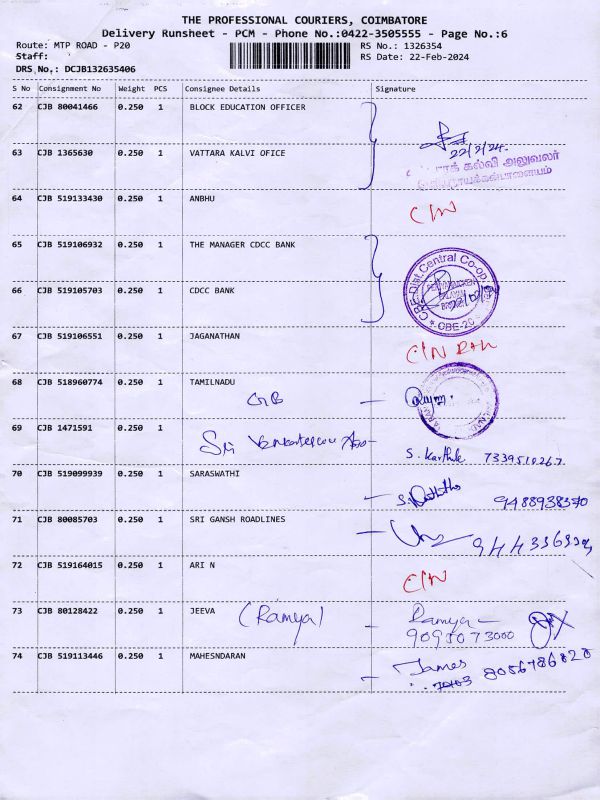 THE PROFESSIONAL COURIERS, COIMBATORE
Delivery Runsheet - PCM - Phone No.:0422-3505555 - Page No.:6
Route: MTP ROAD - P20 RS No.: 1326354
Staff: RS Date: 22-Feb-2024
DRS No.: DCJB132635406
S No Consignment No Weight PCS Consignee Details Signature
62 CJB 80041466 0.250 1 BLOCK EDUCATION OFFICER
22/2/24.
63 CJB 1365630 0.250 1 VATTARA KALVI OFICE
கல்வி அலுவலர்
64 CJB 519133430 0.250 1 ANBHU C/N
65 CJB 519106932 0.250 1 THE MANAGER CDCC BANK
CBE-Dist.Central Co-op
66 CJB 519105703 0.250 1 CDCC BANK
CBE-20
67 CJB 519106551 0.250 1 JAGANATHAN C/N
68 CJB 518960774 0.250 1 TAMILNADU
69 CJB 1471591 0.250 1 Sri
S. Karthik
70 CJB 519099939 0.250 1 SARASWATHI
9488938370
71 CJB 80085703 0.250 1 SRI GANSH ROADLINES
72 CJB 519164015 0.250 1 ARI N C/N
73 CJB 80128422 0.250 1 JEEVA (Ramya) Ramya
9095073000
74 CJB 519113446 0.250 1 MAHESNDARAN James 8056786828